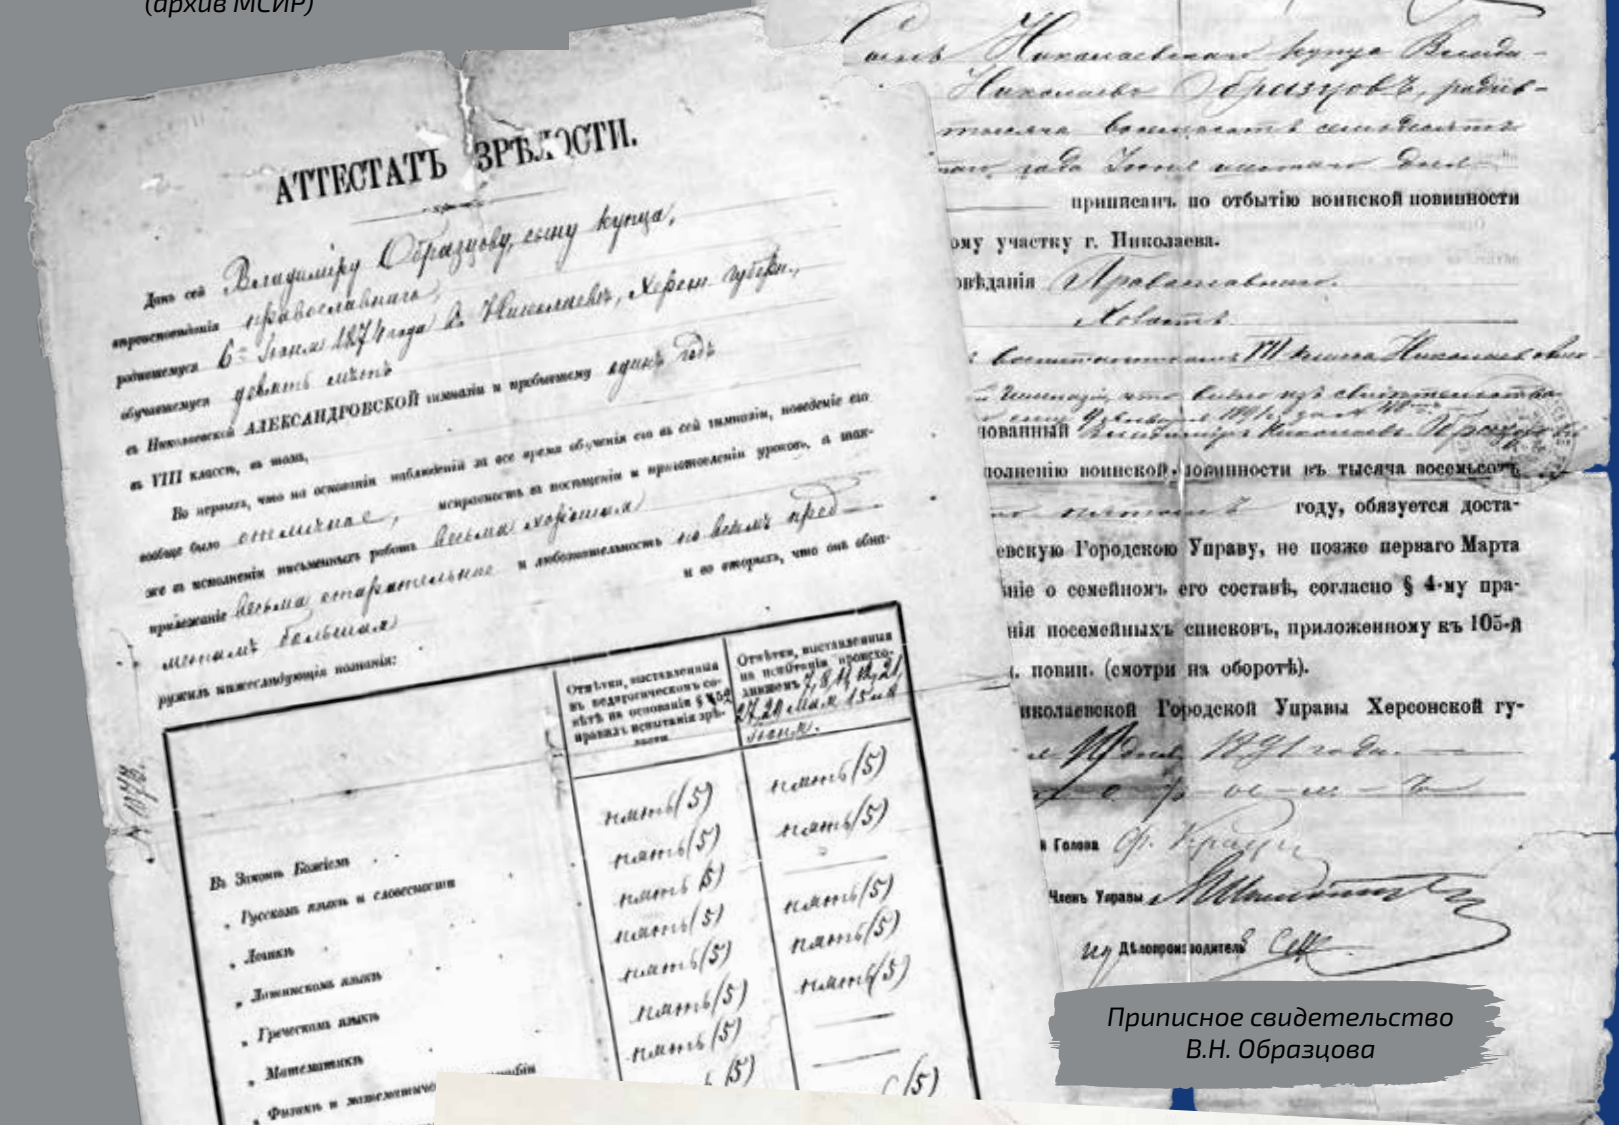 (архив МСИР)
АТТЕСТАТЪ ЗРѢЛОСТИ.
Данъ сей Владиміру Образцову, сыну купца,
вѣроисповѣданія православнаго,
родившемуся 6го Іюня 1874 года въ Николаевѣ, Херсон. губерн.,
обучавшемуся девять лѣтъ
въ Николаевской АЛЕКСАНДРОВСКОЙ гимназіи и пробывшему одинъ годъ
въ VIII классѣ, въ томъ,
Во первыхъ, что на основаніи наблюденій за все время обученія его въ сей гимназіи, поведеніе его
вообще было отличное, исправность въ посѣщеніи и приготовленіи уроковъ, а так-
же въ исполненіи письменныхъ работъ весьма хорошая
прилежаніе весьма старательное и любознательность по всѣмъ пред-
метамъ большая и во вторыхъ, что онъ обна-
ружилъ нижеслѣдующія познанія:
Отмѣтки, выставленныя
въ педагогическомъ со-
вѣтѣ на основаніи §
правилъ испытанія зрѣ-
лости.
Отмѣтки, выставленныя
на испытаніи происхо-
дившемъ 7, 8,
27, 29 Мая 15 и
Іюня.
Въ Законѣ Божіемъ пять (5) пять (5)
„ Русскомъ языкѣ и словесности пять (5) пять (5)
„ Логикѣ пять (5)
„ Латинскомъ языкѣ пять (5) пять (5)
„ Греческомъ языкѣ пять (5) пять (5)
„ Математикѣ пять (5) пять (5)
„ Физикѣ и математической географіи пять (5)
(5) (5)
Сынъ Николаевскаго купца Влади-
Николаевъ Образцовъ, родив-
тысяча восемьсотъ семьдесятъ
года Іюня шестого дня
приписанъ по отбытію воинской повинности
ому участку г. Николаева.
овѣданія Православнаго.
Холостъ.
воспитанникомъ VII класса Николаевской
Гимназіи, что видно изъ свидѣтельства
нованный Владиміръ Николаевъ Образцовъ
полненію воинской повинности въ тысяча восемьсотъ
пятомъ году, обязуется доста-
евскую Городскою Управу, не позже перваго Марта
ніе о семейномъ его составѣ, согласно § 4-му пра-
нія посемейныхъ списковъ, приложенному къ 105-й
. повин. (смотри на оборотѣ).
иколаевской Городской Управы Херсонской гу-
дня 1891 года.
Голова
Членъ Управы
Дѣлопроизводитель
Приписное свидетельство
В.Н. Образцова